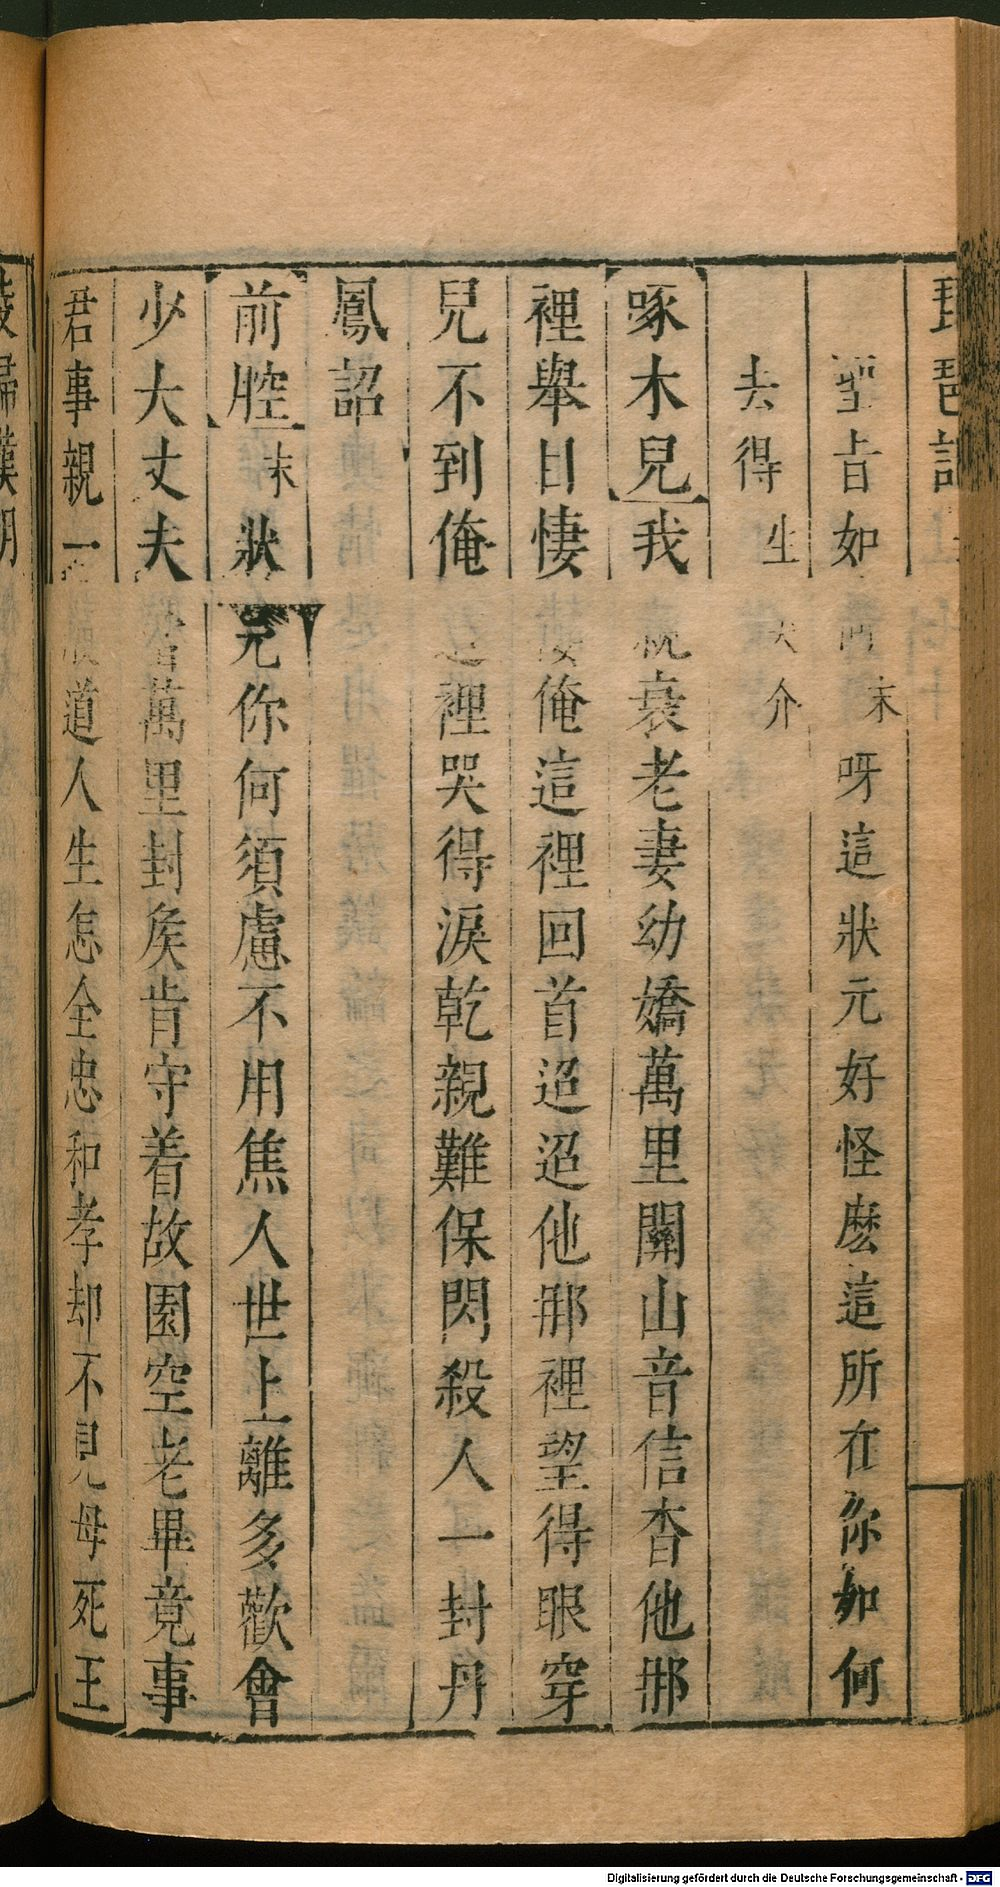 琵琶記上
聖旨如何末呀這狀元好怪麽這所在你如何
去得生哭介
啄木兒我親衰老妻幼嬌萬里關山音信杳他那
裡舉目悽悽俺這裡回首迢迢他那裡望得眼穿
兒不到俺這裡哭得淚乾親難保閃殺人一封丹
鳳詔
前腔末狀元你何須慮不用焦人世上離多歡會
少大丈夫當萬里封矦肯守着故園空老畢竟事
君事親一般道人生怎全忠和孝却不見母死王
陵歸漢朝
Digitalisierung gefördert durch die Deutsche Forschungsgemeinschaft - DFG